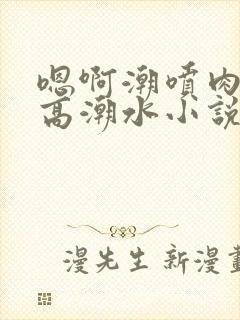 嗯啊潮噴肉
高潮水小說
漫先生新漫畫